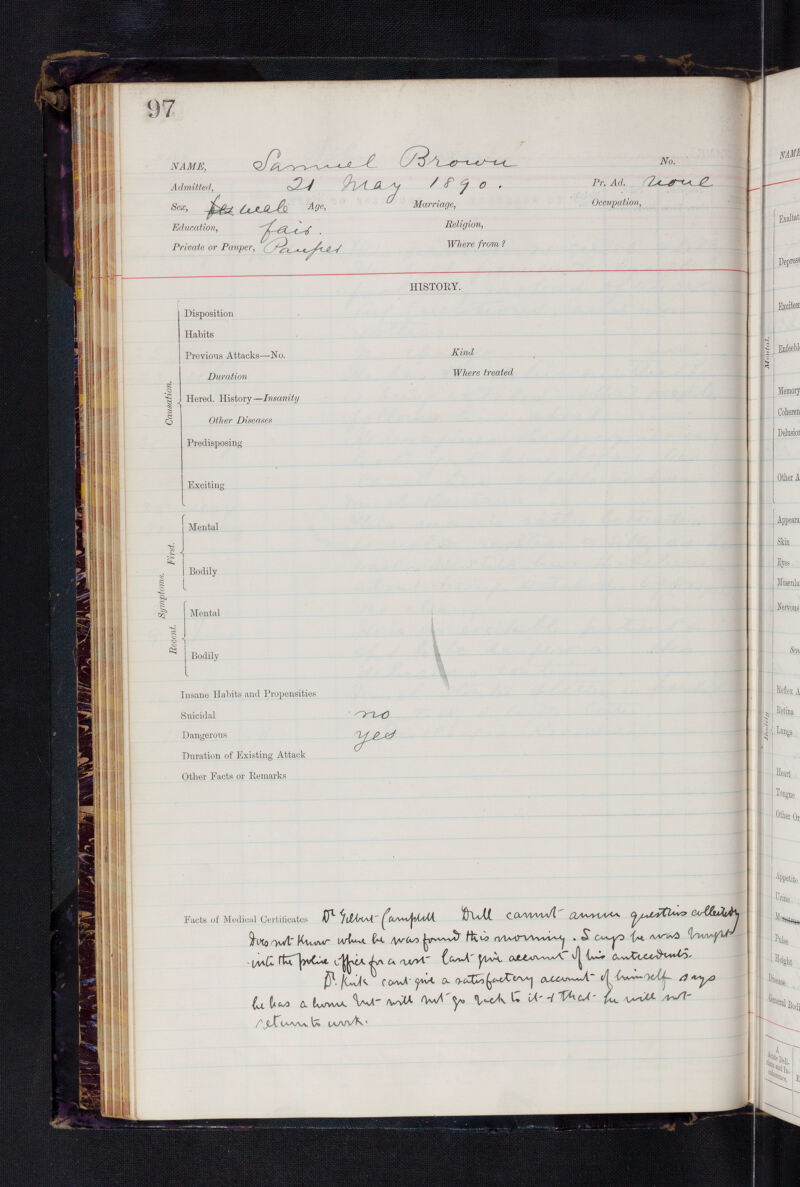 97
NAME, Samuel Brown No.
Admitted, 21 May 1890. Pr. Ad. None
Sex, male Age, Marriage, Occupation,
Education, fair. Religion,
Private or Pauper, Pauper Where from?
HISTORY.
Causation.
Disposition
Habits
Previous Attacks—No. Kind
Duration Where treated
Hered. History—Insanity
Other Diseases
Predisposing
Exciting
Symptoms.
First.
Mental
Bodily
Recent.
Mental
Bodily
Insane Habits and Propensities
Suicidal no
Dangerous yes
Duration of Existing Attack
Other Facts or Remarks
Facts of Medical Certificates Dr Gilbert Campbell Dull cannot answer questions collectedly
Does not know where he was found this morning. Says he was brought
into the police office for a rest Cant give account of his antecedents.
Dr Kirk cant give a satisfactory account of himself says
he has a home but will not go back to it & that he will not
return to work.
NAME
Mental.
Exaltat
Depress
Excitem
Enfeebl
Memory
Coheren
Delusion
Other A
Appeara
Skin
Eyes
Muscula
Nervous
Sen
Reflex A
Retina
Bodily
Lungs
Heart
Tongue
Other Or
Appetite
Urine
Pulse
Height
Disease
General Bodi
A